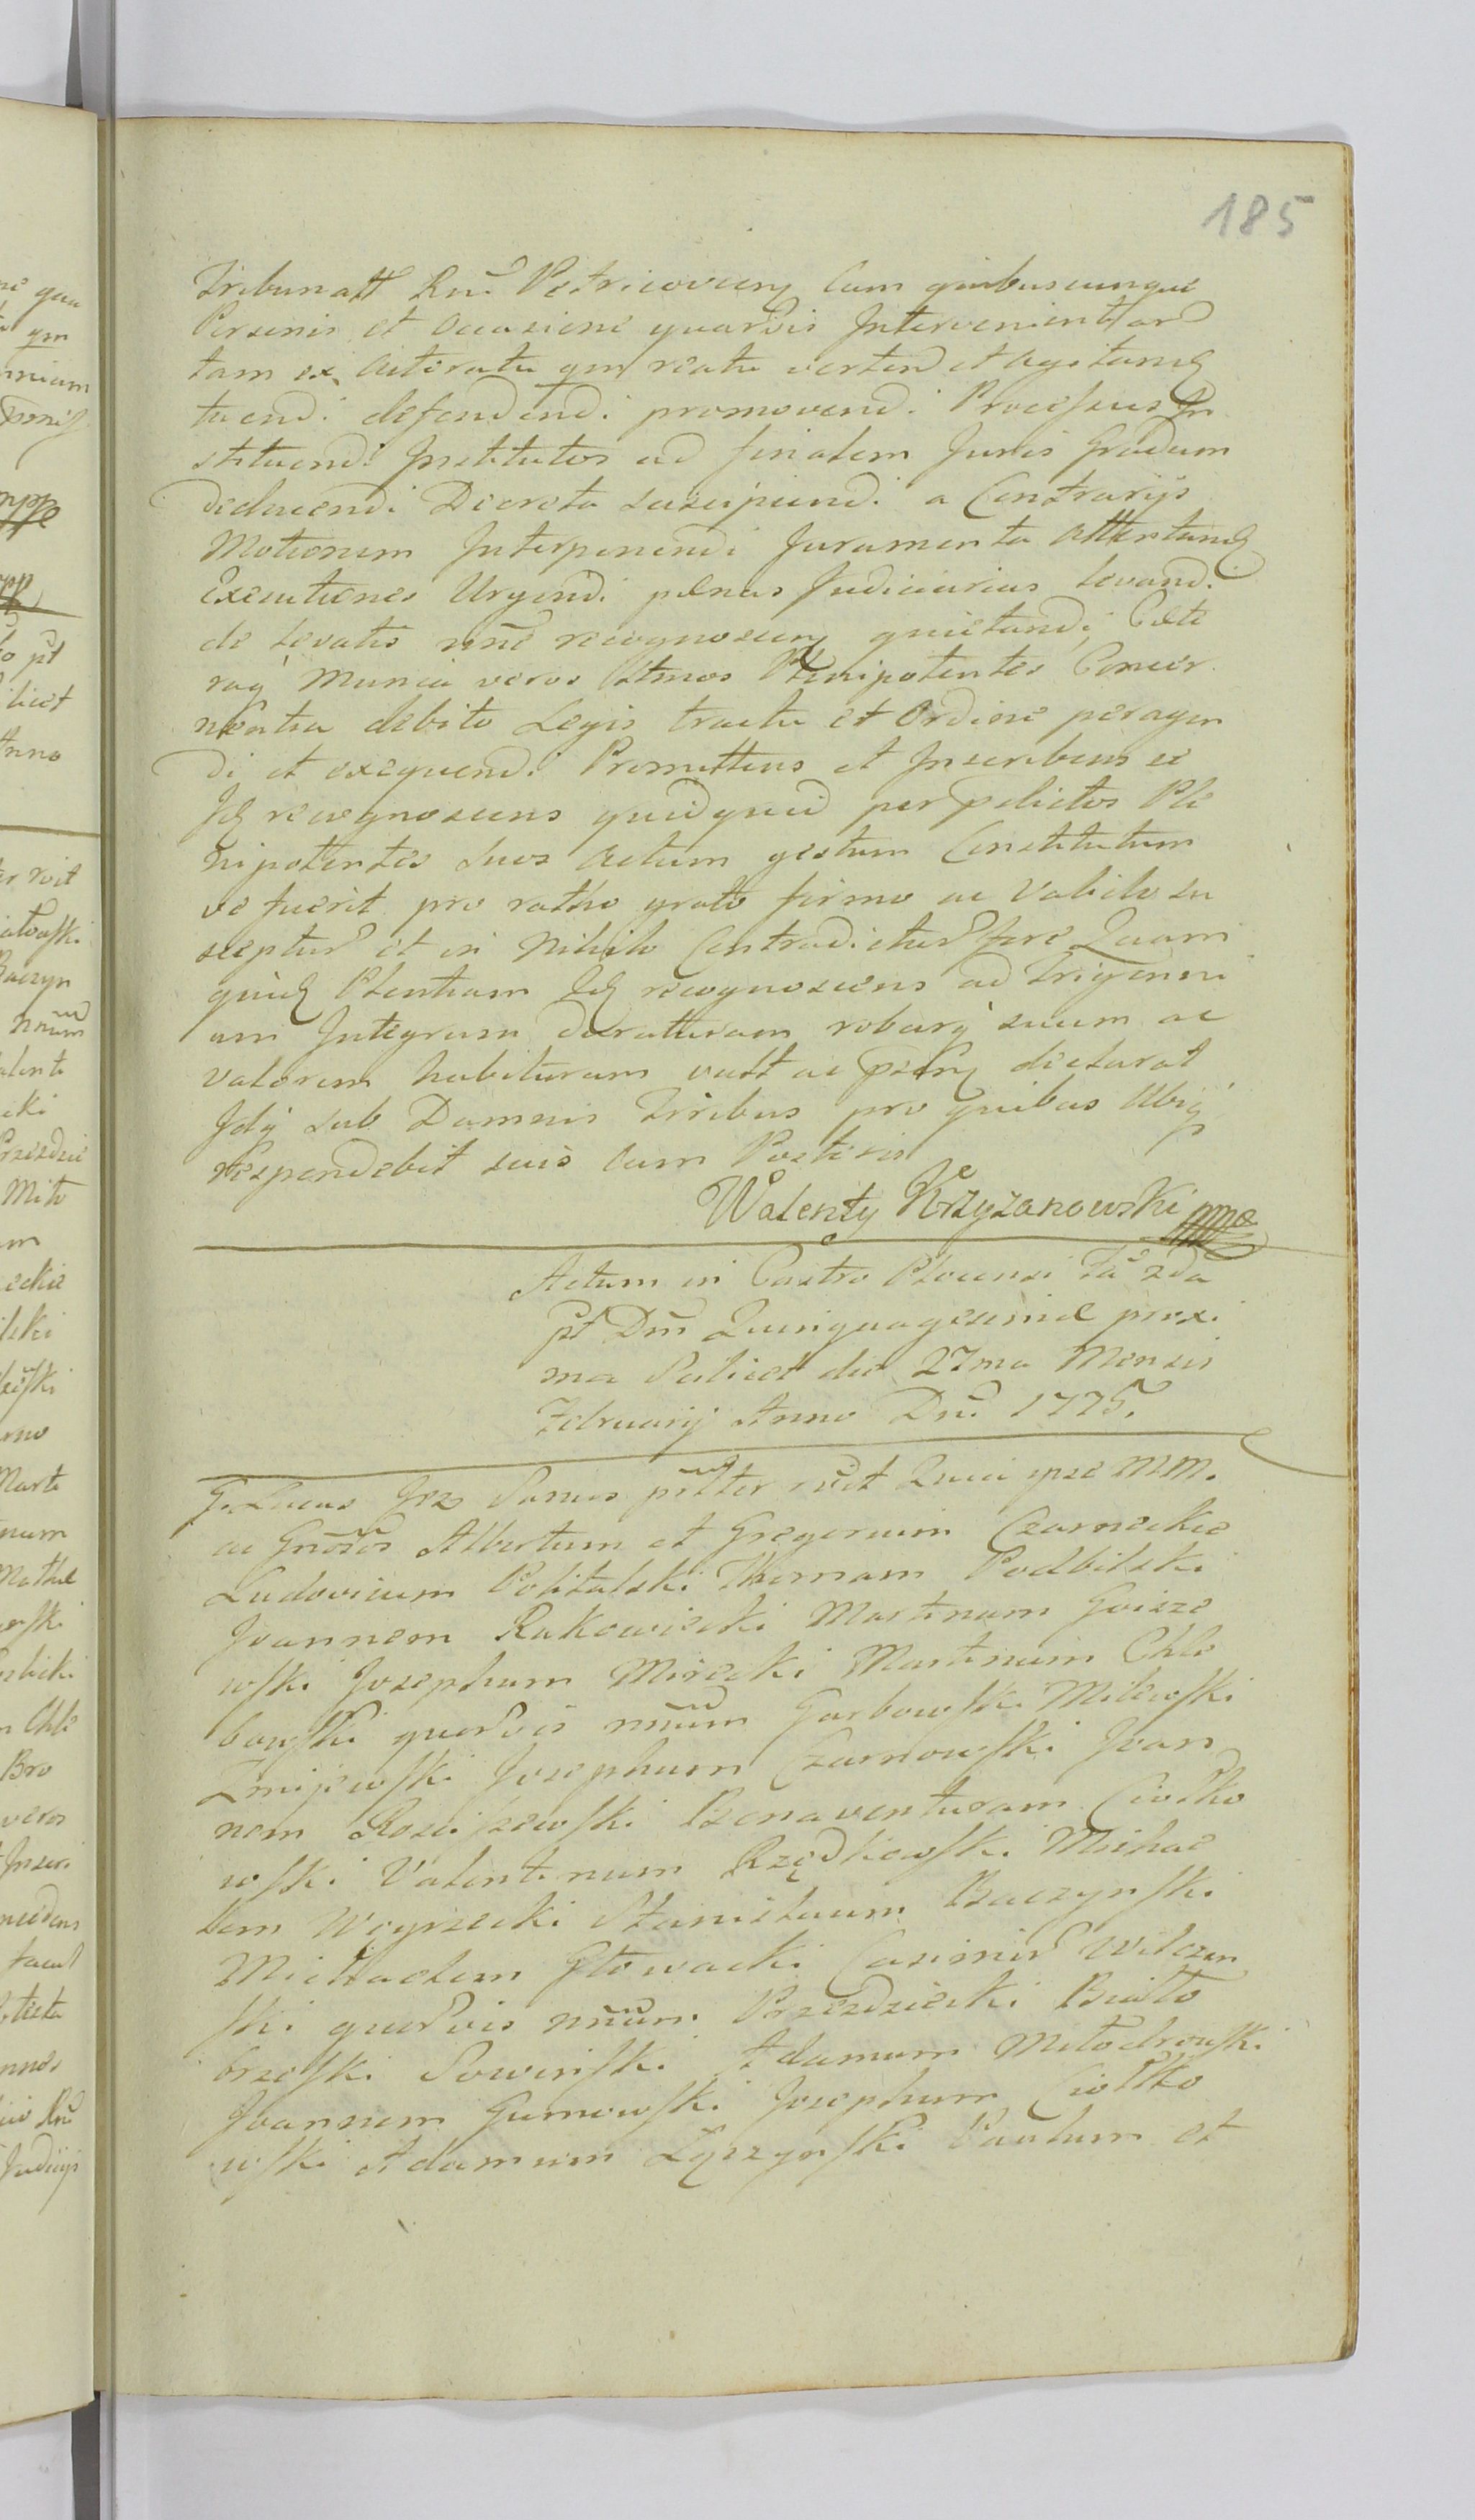 185
Tribunatt Rnĩ Petricovieny Cum quibuscunque
Personis et Occasione quarvis Intervenient ard
tam ex Actoratu qm reatu vertend et agitand
tuendi defendendi promovendi Processus In
stituendi Institutos ad finalem Juris Gradum
deducendi Decreta suscipiendi a Contrarijs
Motionem Interponendi Juramenta attentand
Executiones Urgendi pænas Judiciarias levandi
de levatis nñe recognoscen quietandi Cæte
raq Munia veros Ltmos Plenipotentes Concer
nentia debito Legis tractu et Ordine peragen
di et exequendi Promittens et Inscribens se
Id recognoscens quidquid per pdictos Ple
nipotentes Suos Actum gestum Constitutum
ve fuerit pro ratho grato firmo ac Valido su
sceptur et in Nihilo Contradictur fore Quam
quid Plentiam Id recognoscens ad Trigenni
um Integrum duraturam robury suum ac
valorem habituram vult ac declarat
Idq sub Damnis Trribus pro quibus Ubiq
respondebit suis cum Posteris
Walenty Krzyzanowski mpp
Actum in Castro Plocensi fã 2da
pt Dm̃ Quinquagesimæ proxi
ma Scilicet die 27ma Mensis
Februarij Anno Dnĩ 1775.
G. Lucas Jez Sanus psltter rvit Quia ipse MM.
ac Gnõsos Albertum et Gregorium Czarneckie
Ludovicum Politalski Thomam Podbilski
Joannem Rakowiecki Martinum Goisze
wski Josephum Mirecki Martinum Chle
bowski quosvis nñum Garbowski Milewski
Zmijewski Josephum Czarnowski Joan
nem Rosciszewski Bonaventuram Ciołko
wski Valentinum Rzędkowski Michae
lem Węgrzecki Stanislaum Baczynski
Michaelem Głowacki Casimir Wilczen
ski quosvis nñum Przezdziecki Biało
brzeski Sowinski Adamum Młodrowski
Joannem Gumowski Josephum Ciołko
wski Adamum Łęczynski Paulum et